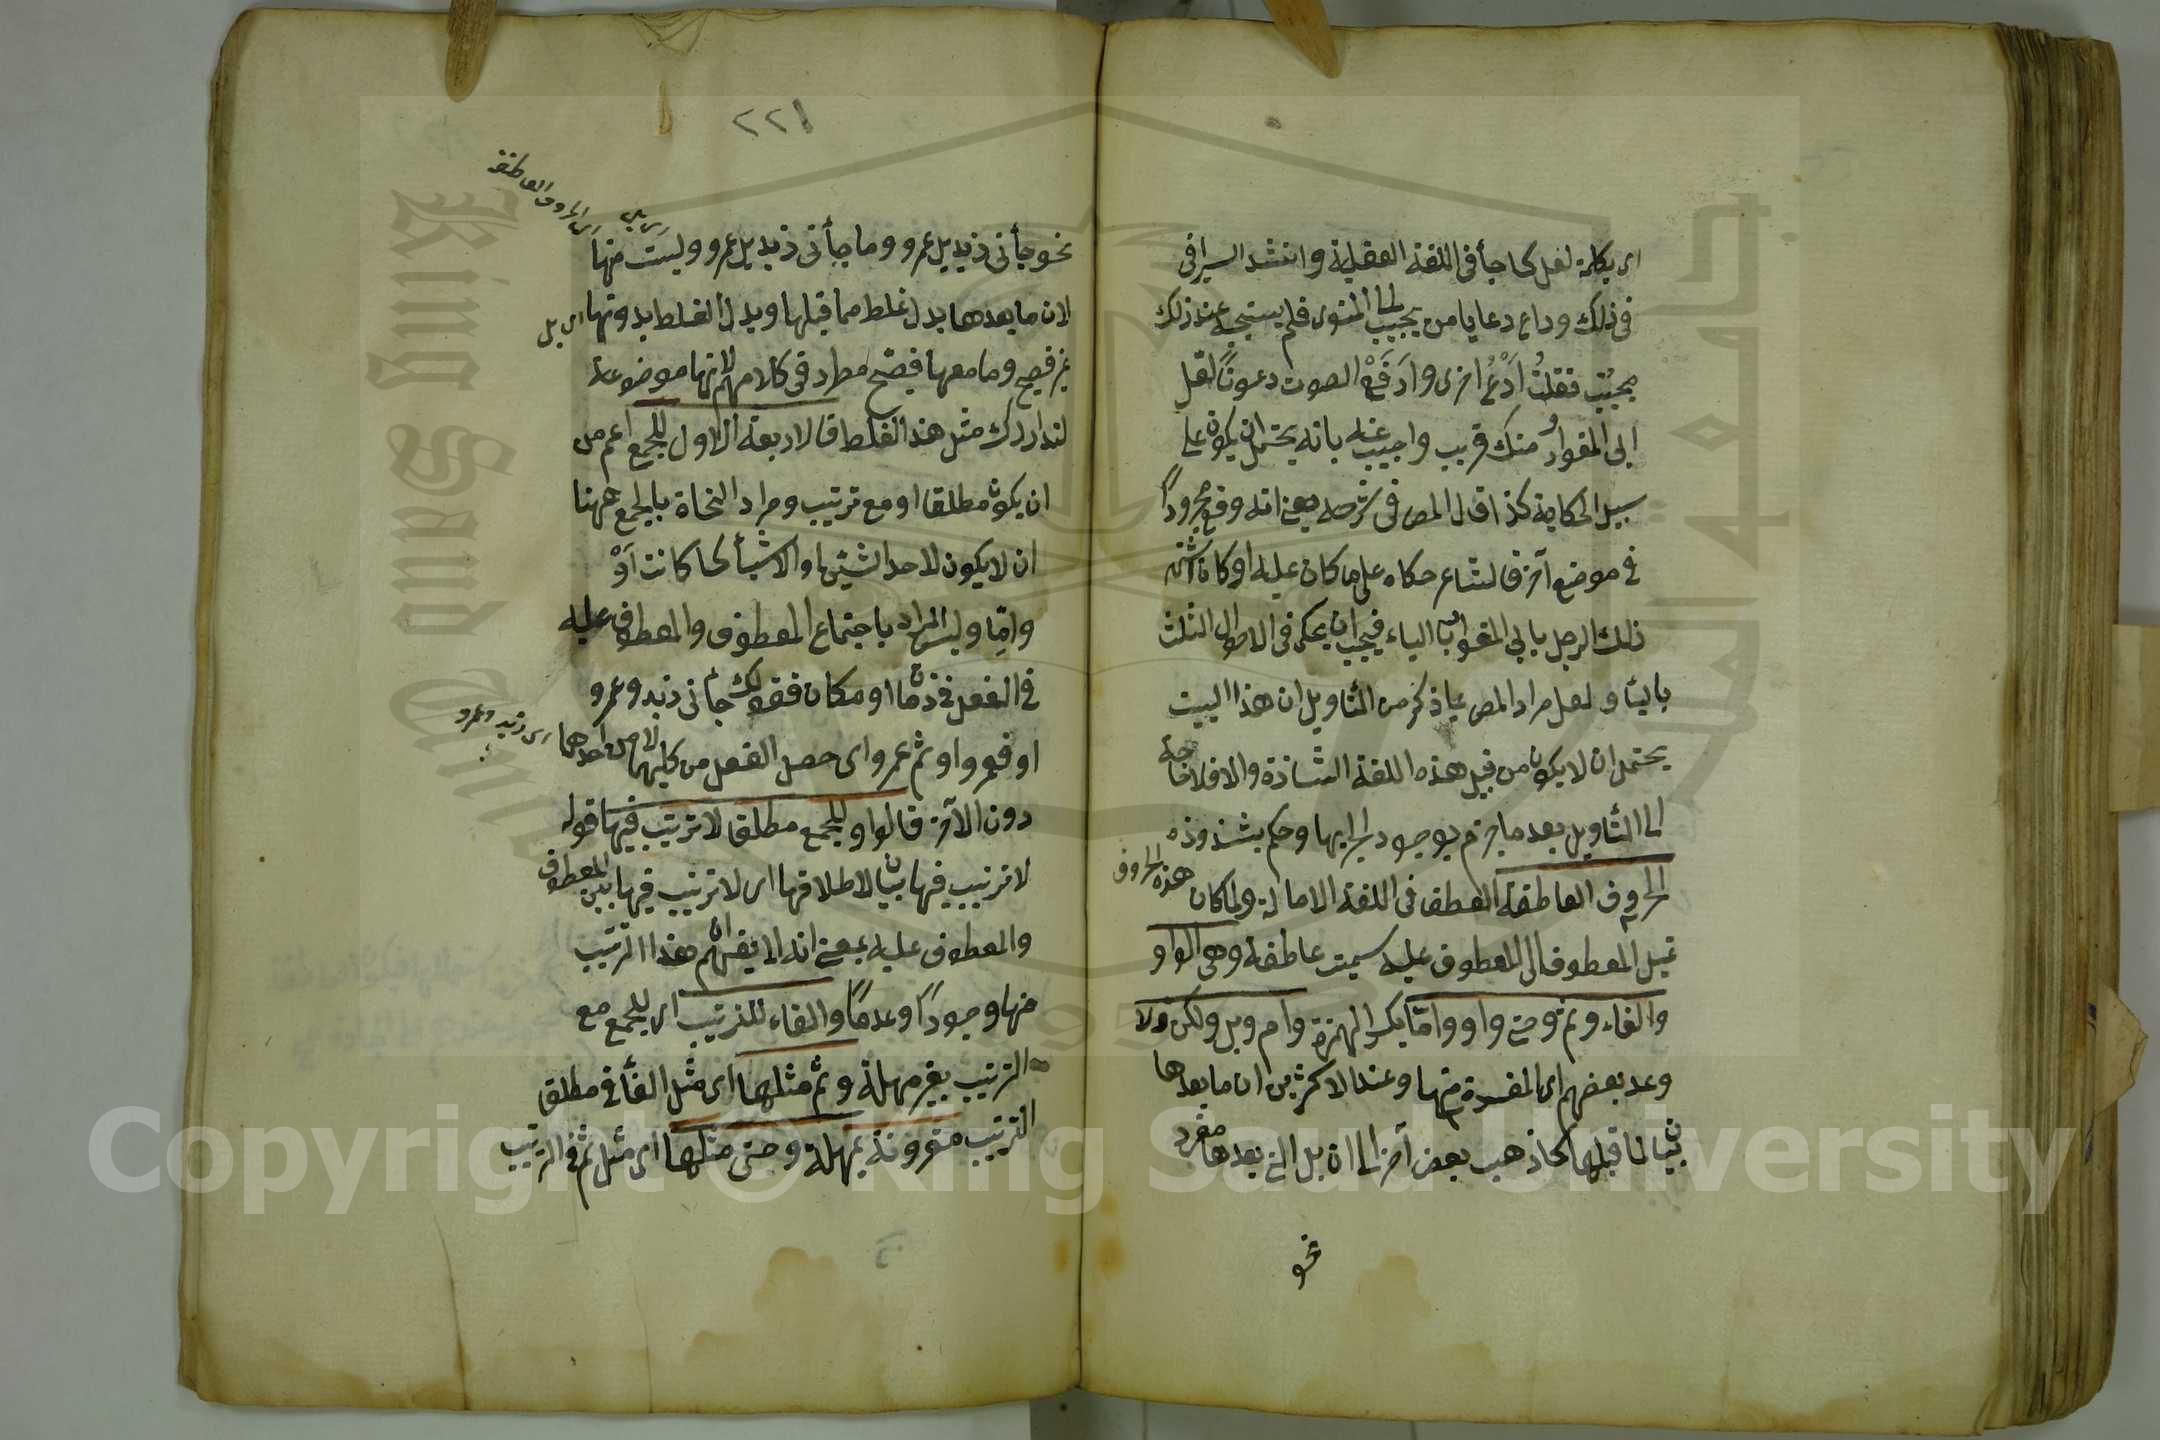 اى بكلمة لعل كما جأ فى اللغة العقيلية وانشد السيرافى
فى ذلك وداع دعا يا من يجيب الى الندى فلم يستجبه عند ذلك
مجيب فقلت اُدْعُ اخرى وارفع الصوت دعوةً لعل
ابى المغوار منك قريب واجيب عنه بانه يحتمل ان يكون على
سبيل الحكاية كذا قال المص فى شرحه يعنى انه وقع مجرورًا
فى موضع آخر فالشاعر حكاه على ما كان عليه او كان اشتهر
ذلك الرجل بابى المغوار بالياء فيجب ان يحكى فى الاحوال الثلث
بالياء ولعل مراد المص بما ذكر من التأويل ان هذا البيت
يحتمل ان لا يكون من قبيل هذه اللغة الشاذة والا فلا حاجة
الى التأويل بعد ما جزم بوجود الجر بها وحكم بشذوذه
الحروف العاطفة العطف فى اللغة الامالة ولما كان هذه الحروف
تميل المعطوف الى المعطوف عليه سميت عاطفة وهى الواو
والفاء وثم وحتى واو واما بكسر الهمزة وام وبل ولكن ولا
وعد بعضهم اى المفسرة منها وعند الاكثرين ان ما بعدها
عطف بيان لما قبلها كما ذهب بعض آخر الى ان بل التى بعدها مفرد
نحو
٢٢١
اى من الحروف العاطفة
اى بل
نحو جأنى زيد بل عمرو وما جأنى زيد بل عمرو وليست منها
لان ما بعدها بدل غلط مما قبلها وبدل الغلط بدونها اى بل
غير فصيح وما معها فصيح مطرد فى كلامهم لانها موضوعة
لتدارك مثل هذا الغلط فالاربعة الاول للجمع اعم من
ان يكون مطلقا او مع ترتيب ومراد النحاة بالجمع ههنا
ان لا يكون لاحد الشيئين او الاشيأ كما كانت اَوْ
واِمّا وليس المراد باجتماع المعطوف والمعطوف عليه
فى الفعل فى زمان او مكان فقولك جأنى زيد وعمرو
او فعمرو او ثم عمرو اى حصل الفعل من كليهما لا من احدهما
اى زيد وعمرو
دون الآخر فالواو للجمع مطلقا لا ترتيب فيها قوله
لا ترتيب فيها بيان لاطلاقها اى لا ترتيب فيها بين المعطوف
والمعطوف عليه بمعنى انه لا يفهم هذا الترتيب
منها وجودًا وعدمًا والفاء للترتيب اى للجمع مع
الترتيب بغير مهلة وثم مثلها اى مثل الفأ فى مطلق
الترتيب مقرونة بمهلة وحتى مثلها اى مثل ثم فى الترتيب
King Saud University
Copyright © King Saud University